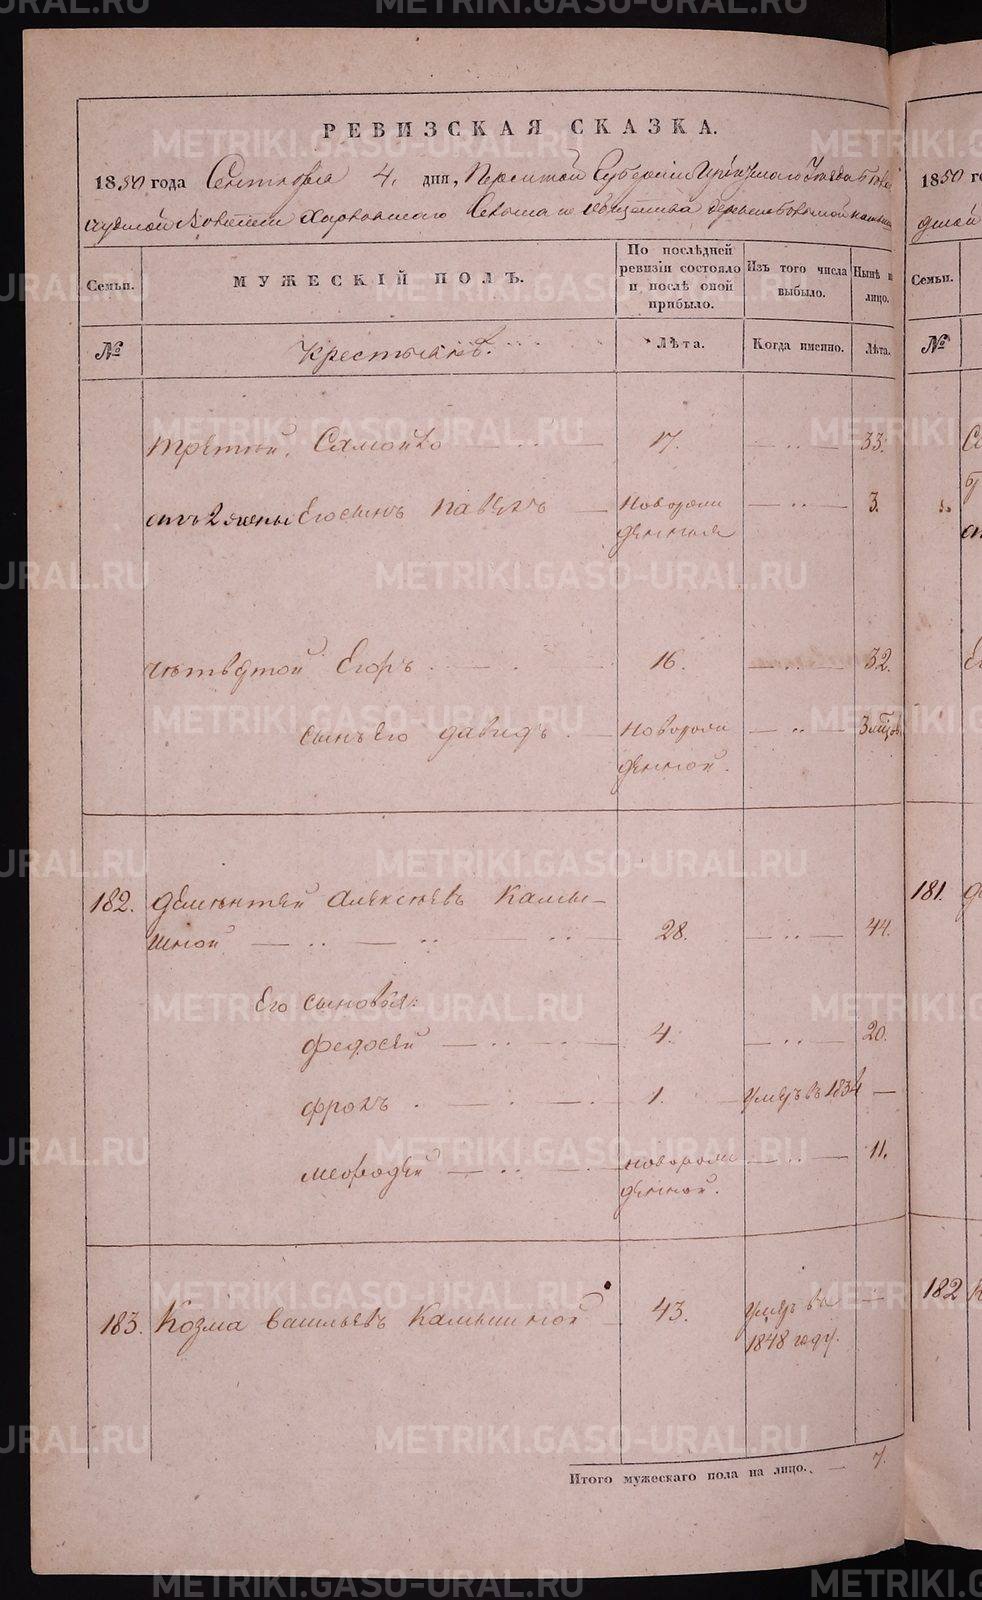 METRIKI.GASO-URAL.RU
РЕВИЗСКАЯ СКАЗКА.
1850 года Сентября 4. дня, Пермской Губернии Ирбитскаго Уезда
Харловскаго Сельскаго общества деревни
Семьи. МУЖЕСКІЙ ПОЛЪ. По послѣдней ревизіи состояло и послѣ оной прибыло. Изъ того числа выбыло. Нынѣ на лицо.
№ Крестьянѣ. Лѣта. Когда именно. Лѣта.
третей Самойло 17. 33.
отъ 2 жены Его сынъ павелъ новорож 3.
денныя
четвертой Егоръ 16. 32.
сынъ Его давидъ новорож 3 мѣцов
денной.
182. дементей алексеевъ Камы-
шной 28. 44.
Его сыновья:
федосей 4. 20.
фролъ 1. умеръ въ 1834
мефодей новорож 11.
денной.
183. Козма васильевъ Камышной 43. умеръ въ
1848 году.
Итого мужескаго пола на лицо. 7.
1850 го
Семьи.
№
181.
182